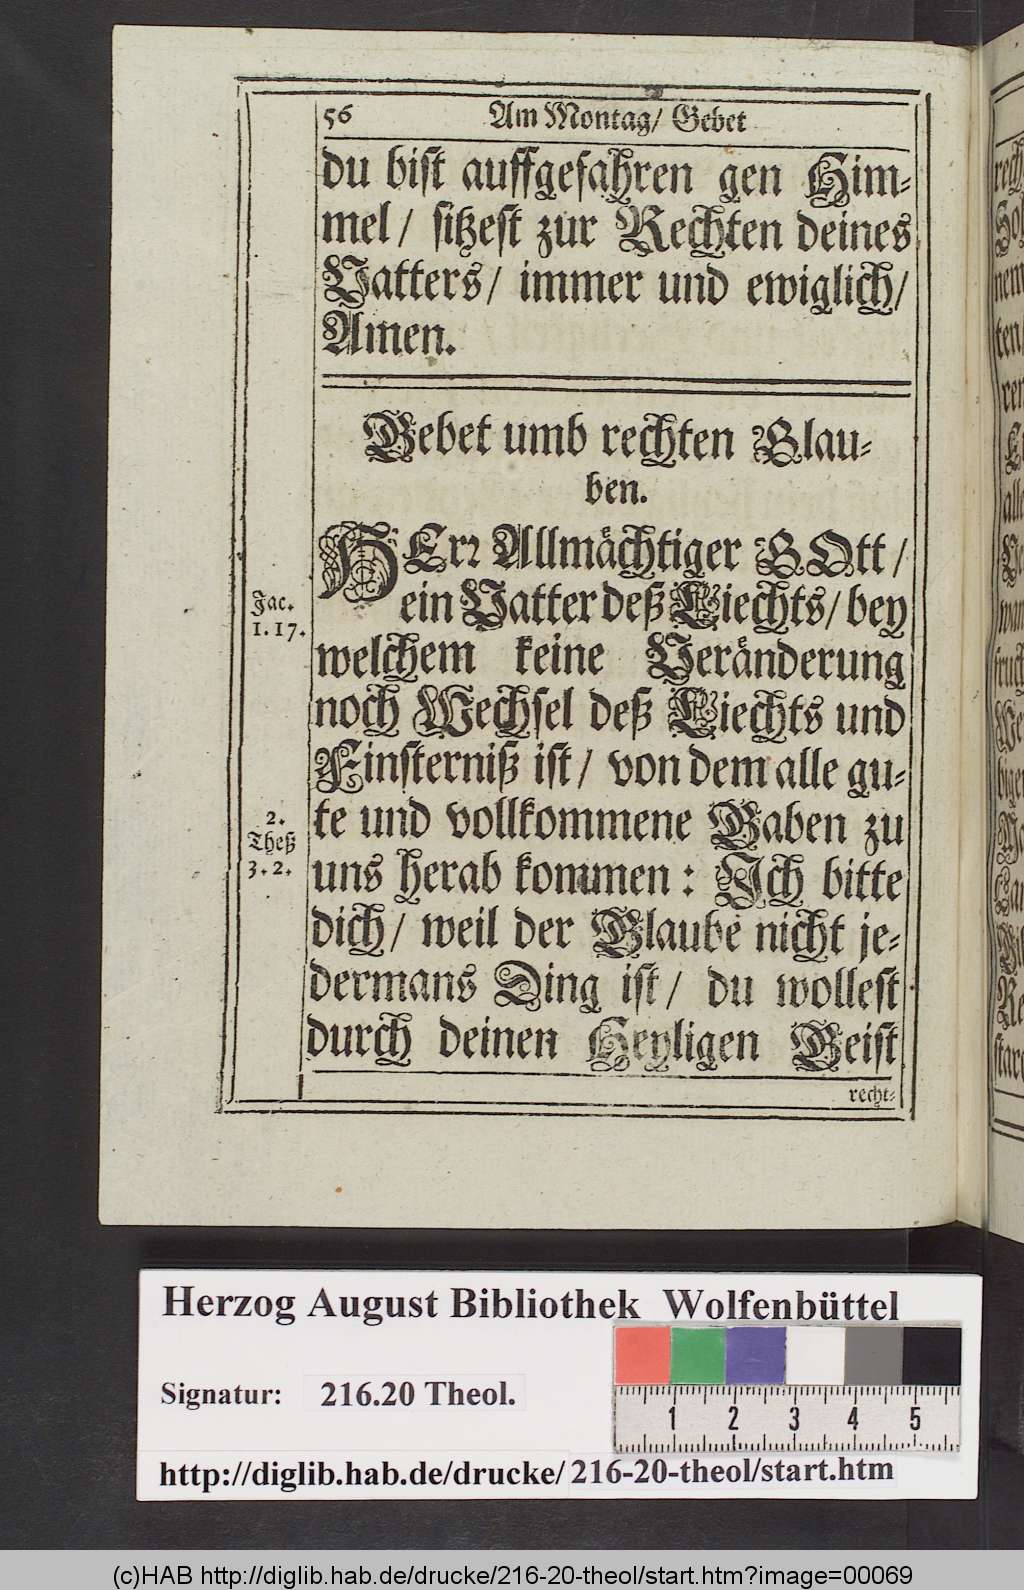 56 Am Montag/ Gebet
du bist auffgefahren gen Him-
mel/ sitzest zur Rechten deines
Vatters/ immer und ewiglich/
Amen.
Gebet umb rechten Glau-
ben.
HErr Allmächtiger GOtt/
ein Vatter deß Liechts/ bey
Jac.
1.17.
welchem keine Veränderung
noch Wechsel deß Liechts und
Finsterniß ist/ von dem alle gu-
te und vollkommene Gaben zu
2.
Theß
3.2.
uns herab kommen: Ich bitte
dich/ weil der Glaube nicht je-
dermans Ding ist/ du wollest
durch deinen Heyligen Geist
recht-
Herzog August Bibliothek Wolfenbüttel
Signatur: 216.20 Theol.
1 2 3 4 5
http://diglib.hab.de/drucke/216-20-theol/start.htm
(c)HAB http://diglib.hab.de/drucke/216-20-theol/start.htm?image=00069